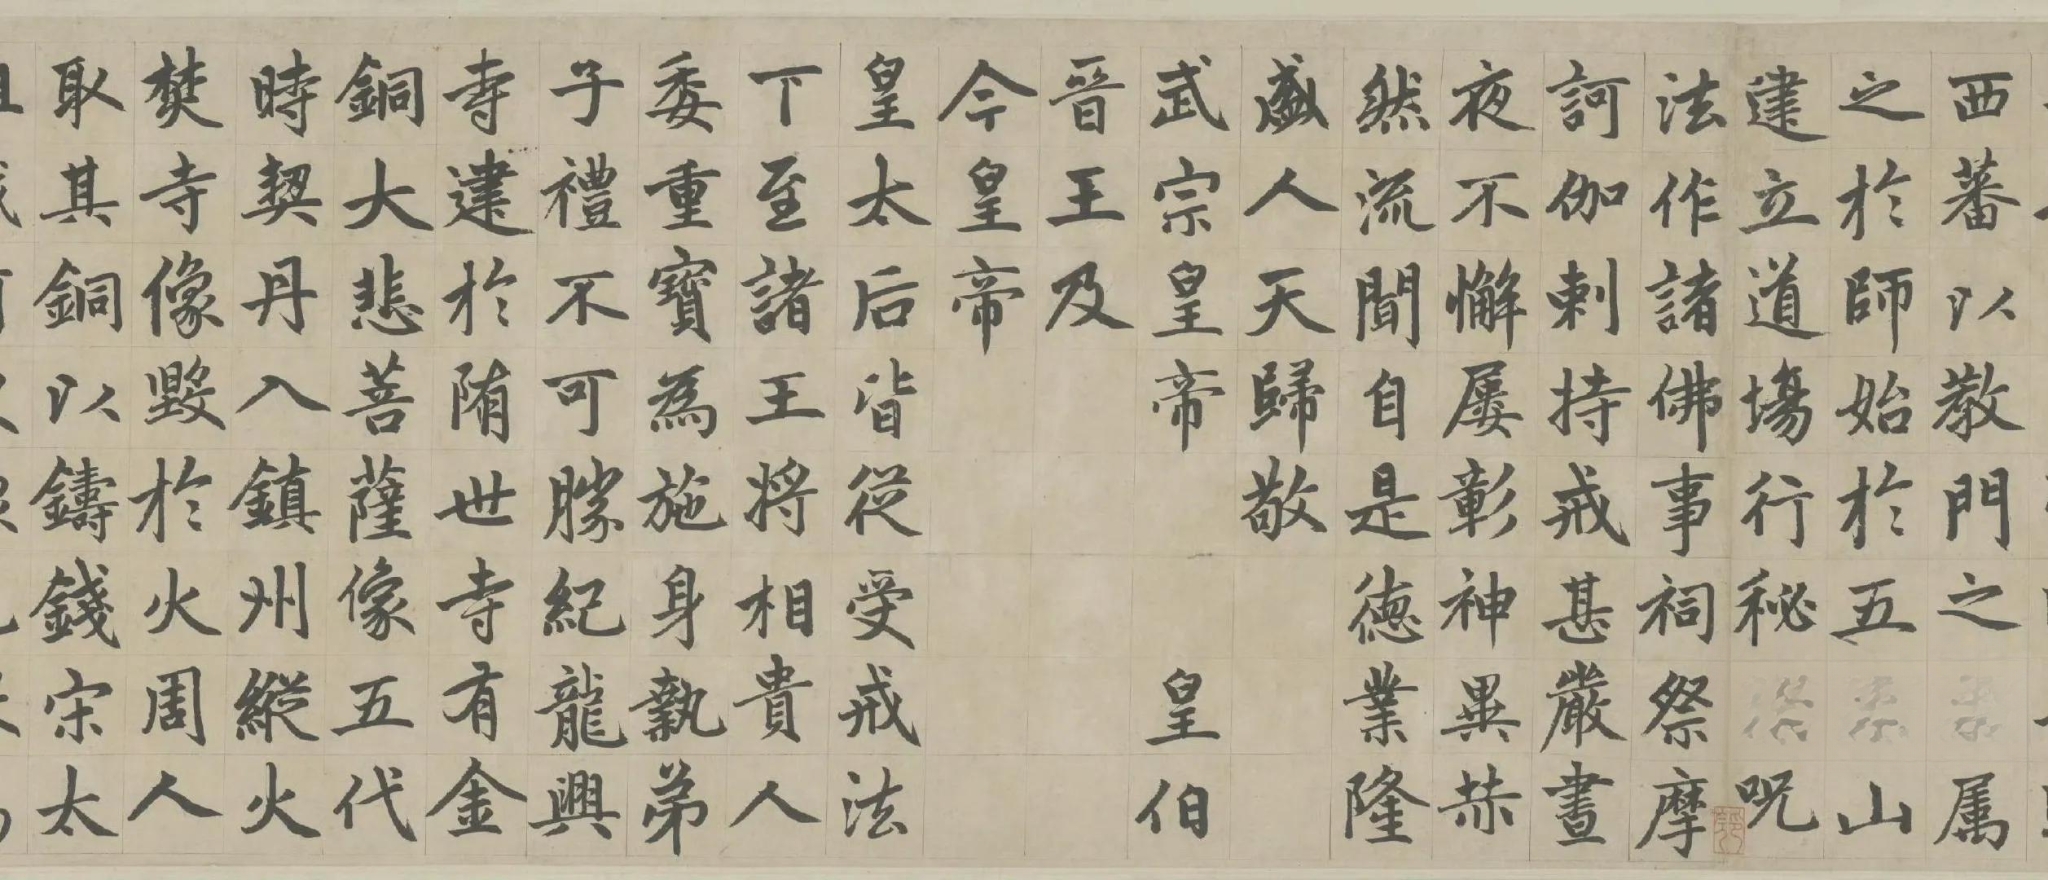 西蕃以教門之属
之於師始於五山
建立道場行秘呪
法作諸佛事祠祭摩
訶伽剌持戒甚嚴晝
夜不懈屢彰神異赫
然流聞自是德業隆
盛人天歸敬
武宗皇帝　　皇伯
晉王及
今皇帝
皇太后皆從受戒法
下至諸王將相貴人
委重寶為施身執弟
子禮不可勝紀龍興
寺建於隋世寺有金
銅大悲菩薩像五代
時契丹入鎮州縱火
焚寺像毀於火周人
取其銅以鑄錢宋太